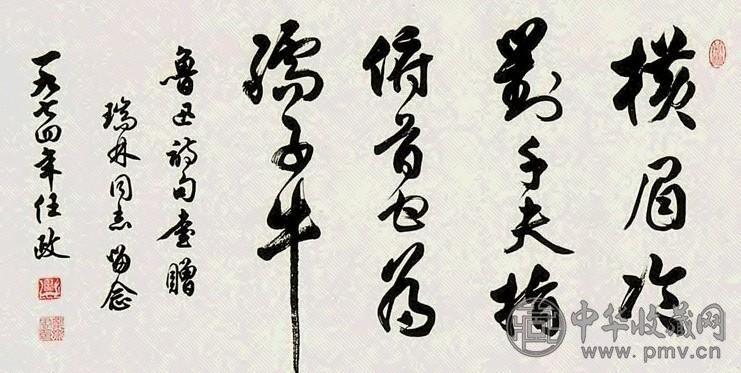 横眉冷
對千夫指
俯首甘为
孺子牛
魯迅诗句書贈
瑞林同志留念
一九七四年任政
中华收藏网
www.pmv.cn